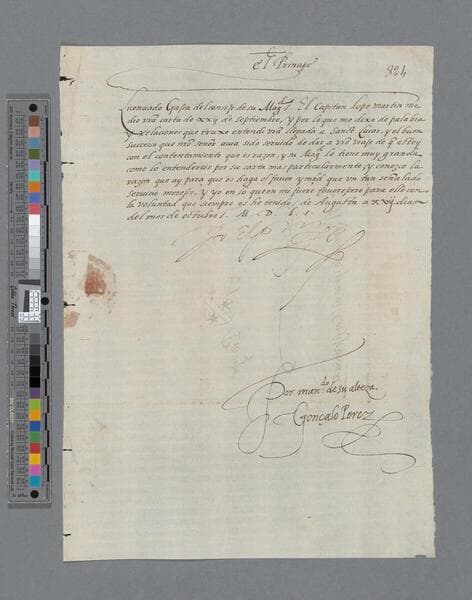 el Principe
824
Licenciado Gasca del consejo de su Magt. El Capitan Lope martin me
dio vra carta de xxij de Septiembre, y por lo que me dixo de palabra y
relaciones que truxo entendi vra llegada a Sanct Lucar, y el buen
successo que nro señor auia sido seruido de dar a vro viaje de q̃ estoy
con el contentamiento que es razon, y su Magt lo tiene muy grande
como lo entendereis por su carta mas particularmente y conozco la
razon que ay para que os haga el fauor y mrd que vn tan señalado
seruicio merese, y yo en lo que en mi fuere fauoresçere para ello con
la voluntad que siempre os he tenido, de Augusta a xxij dias
del mes de octubre. M. D. L.
Por mando de su alteza
Gonçalo Perez